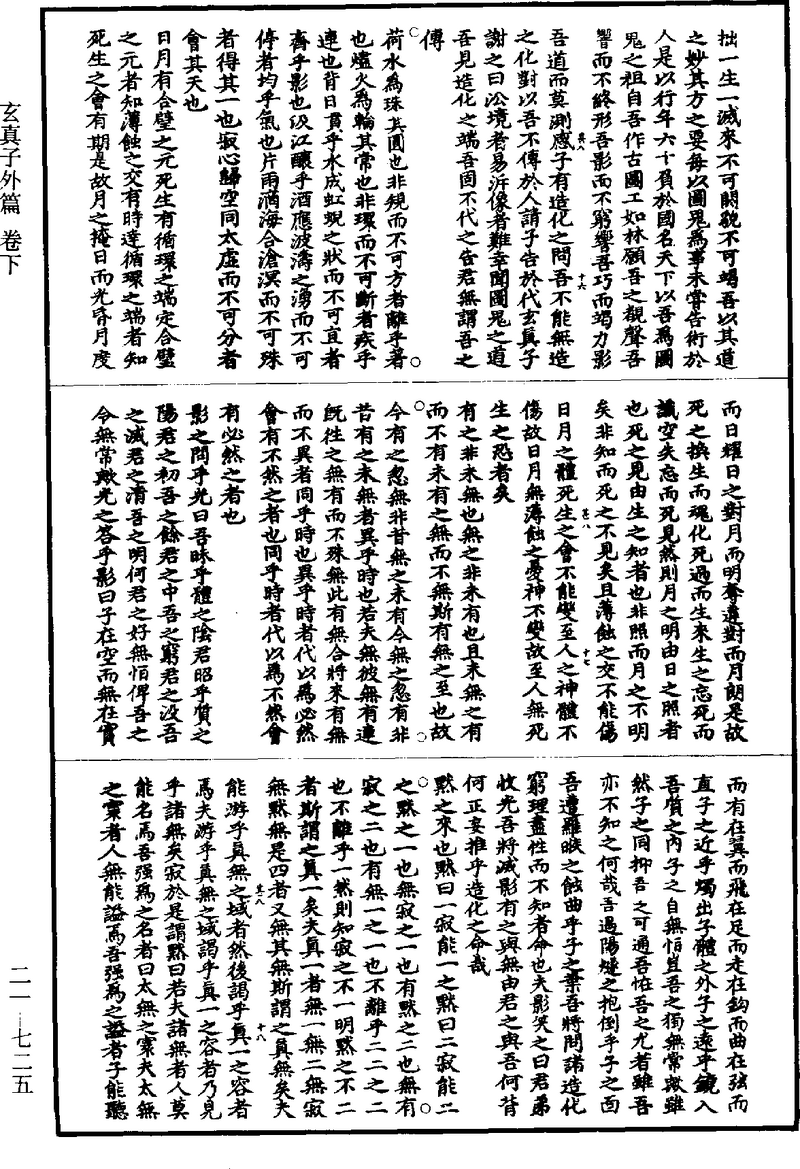 拙一生一滅來不可關貌不可竭吾以其道
之妙其方之要每以圖鬼爲事未嘗告術於
人是以行年六十負於國名天下以吾爲圖
鬼之祖自吾作古圖工如林願吾之覩聲吾
響而不終形吾影而不窮響吾巧而竭力影
吾道而莫測感子有造化之問吾不能無造
之化對以吾不傳於人請子告於代玄真子
謝之曰公境者易泝像者難幸聞圖鬼之道
吾見造化之端吾固不代之告君無謂吾之
傳
荷水爲珠其圓也非規而不可方者離乎著
也爐火爲輪其常也非環而不可斷者疾乎
連也背日噀乎水成虹蜺之狀而不可直者
齊乎影也汲江釀乎酒應波濤之湧而不可
停者均乎氣也片雨滴海合滄溟而不可殊
者得其一也寂心歸空同太虛而不可分者
會其天也
日月有合璧之元死生有循環之端定合璧
之元者知薄蝕之交有時達循環之端者知
死生之會有期是故月之掩日而光昏月度
而日耀日之對月而明奪違對而月朗是故
死之換生而魂化死過而生來生之忘死而
識空失忘而死見然則月之明由日之照者
也死之見由生之知者也非照而月之不明
矣非知而死之不見矣且薄蝕之交不能傷
日月之體死生之會不能變至人之神體不
傷故日月無薄蝕之憂神不變故至人無死
生之恐者矣
有之非未無也無之非未有也且未無之有
而不有未有之無而不無斯有無之至也故
今有之忽無非昔無之未有今無之忽有非
昔有之未無者異乎時也若夫無彼無有連
既往之無有而不殊無此有無合將來有無
而不異者同乎時也異乎時者代以爲必然
會有不然之者也同乎時者代以爲不然會
有必然之者也
影之問乎光曰吾昧乎體之陰君昭乎質之
陽君之初吾之餘君之中吾之窮君之没吾
之滅君之清吾之明何君之好無恒俾吾之
令無常歟光之答乎影曰子在空而無在實
而有在翼而飛在足而走在鈎而曲在弦而
直子之近乎燭出子體之外子之遠乎鏡入
吾質之內子之自無恒豈吾之獨無常歟雖
然子之同抑吾之可通吾怪吾之尤若雖吾
亦不知之何哉吾遇陽燧之抱倒乎子之面
吾遭羅睺之蝕曲乎子之棄吾將問諸造化
窮理盡性而不知者命也夫影笑之曰君弟
收光吾將滅影有之與無由君之與吾何背
何正妄推乎造化之命哉
默之來也默曰一寂能一之默曰二寂能二
之默之一也無寂之一也有默之二也無有
寂之二也有無一之一也不離乎二二之二
也不離乎一然則知寂之不一明默之不二
者斯謂之真一矣夫真一者無一無二無寂
無默無是四者又無其無斯謂之真無矣夫
能游乎真無之域者然後謁乎真一之容者
焉夫游乎真無之域謁乎真一之容者乃見
乎諸無矣寂於是謂默曰若夫諸無者人莫
能名焉吾强爲之名者曰太無之寞夫太無
之寞者人無能謚焉吾强爲之謚者子能聽
甚八 十六
甚八 十七
甚八 十八
玄真子外篇 卷下
二一—七二五